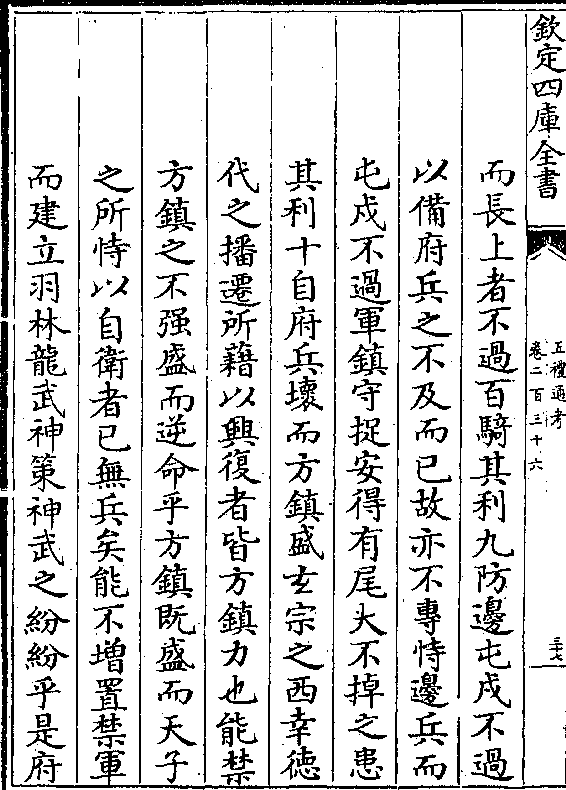 欽定四庫全書
五禮通考
卷二百三十六
三十七
而長上者不過百騎其利九防邊屯戍不過
以備府兵之不及而已故亦不專恃邊兵而
屯戍不過軍鎮守捉安得有尾大不掉之患
其利十自府兵壞而方鎮盛玄宗之西幸德
代之播遷所藉以興復者皆方鎮力也能禁
方鎮之不强盛而逆命乎方鎮既盛而天子
之所恃以自衛者已無兵矣能不增置禁軍
而建立羽林龍武神策神武之紛紛乎是府